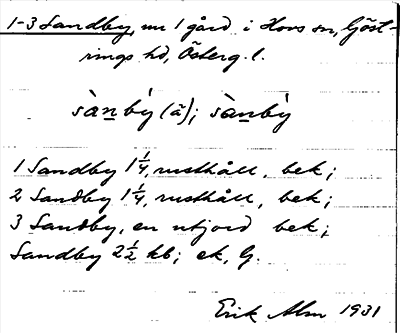 1-3 Sandby, nu 1 gård i Hovs sn, Göst-
rings hd, Österg. l.
sànby̆ (ã); sànby̆
1 Sandby 1 1/4, rusthåll, bek;
2 Sandby 1 1/4, rusthåll, bek;
3 Sandby, en utjord bek;
Sandby 2 1/2 hb; ek, G.
Erik Alm 1931